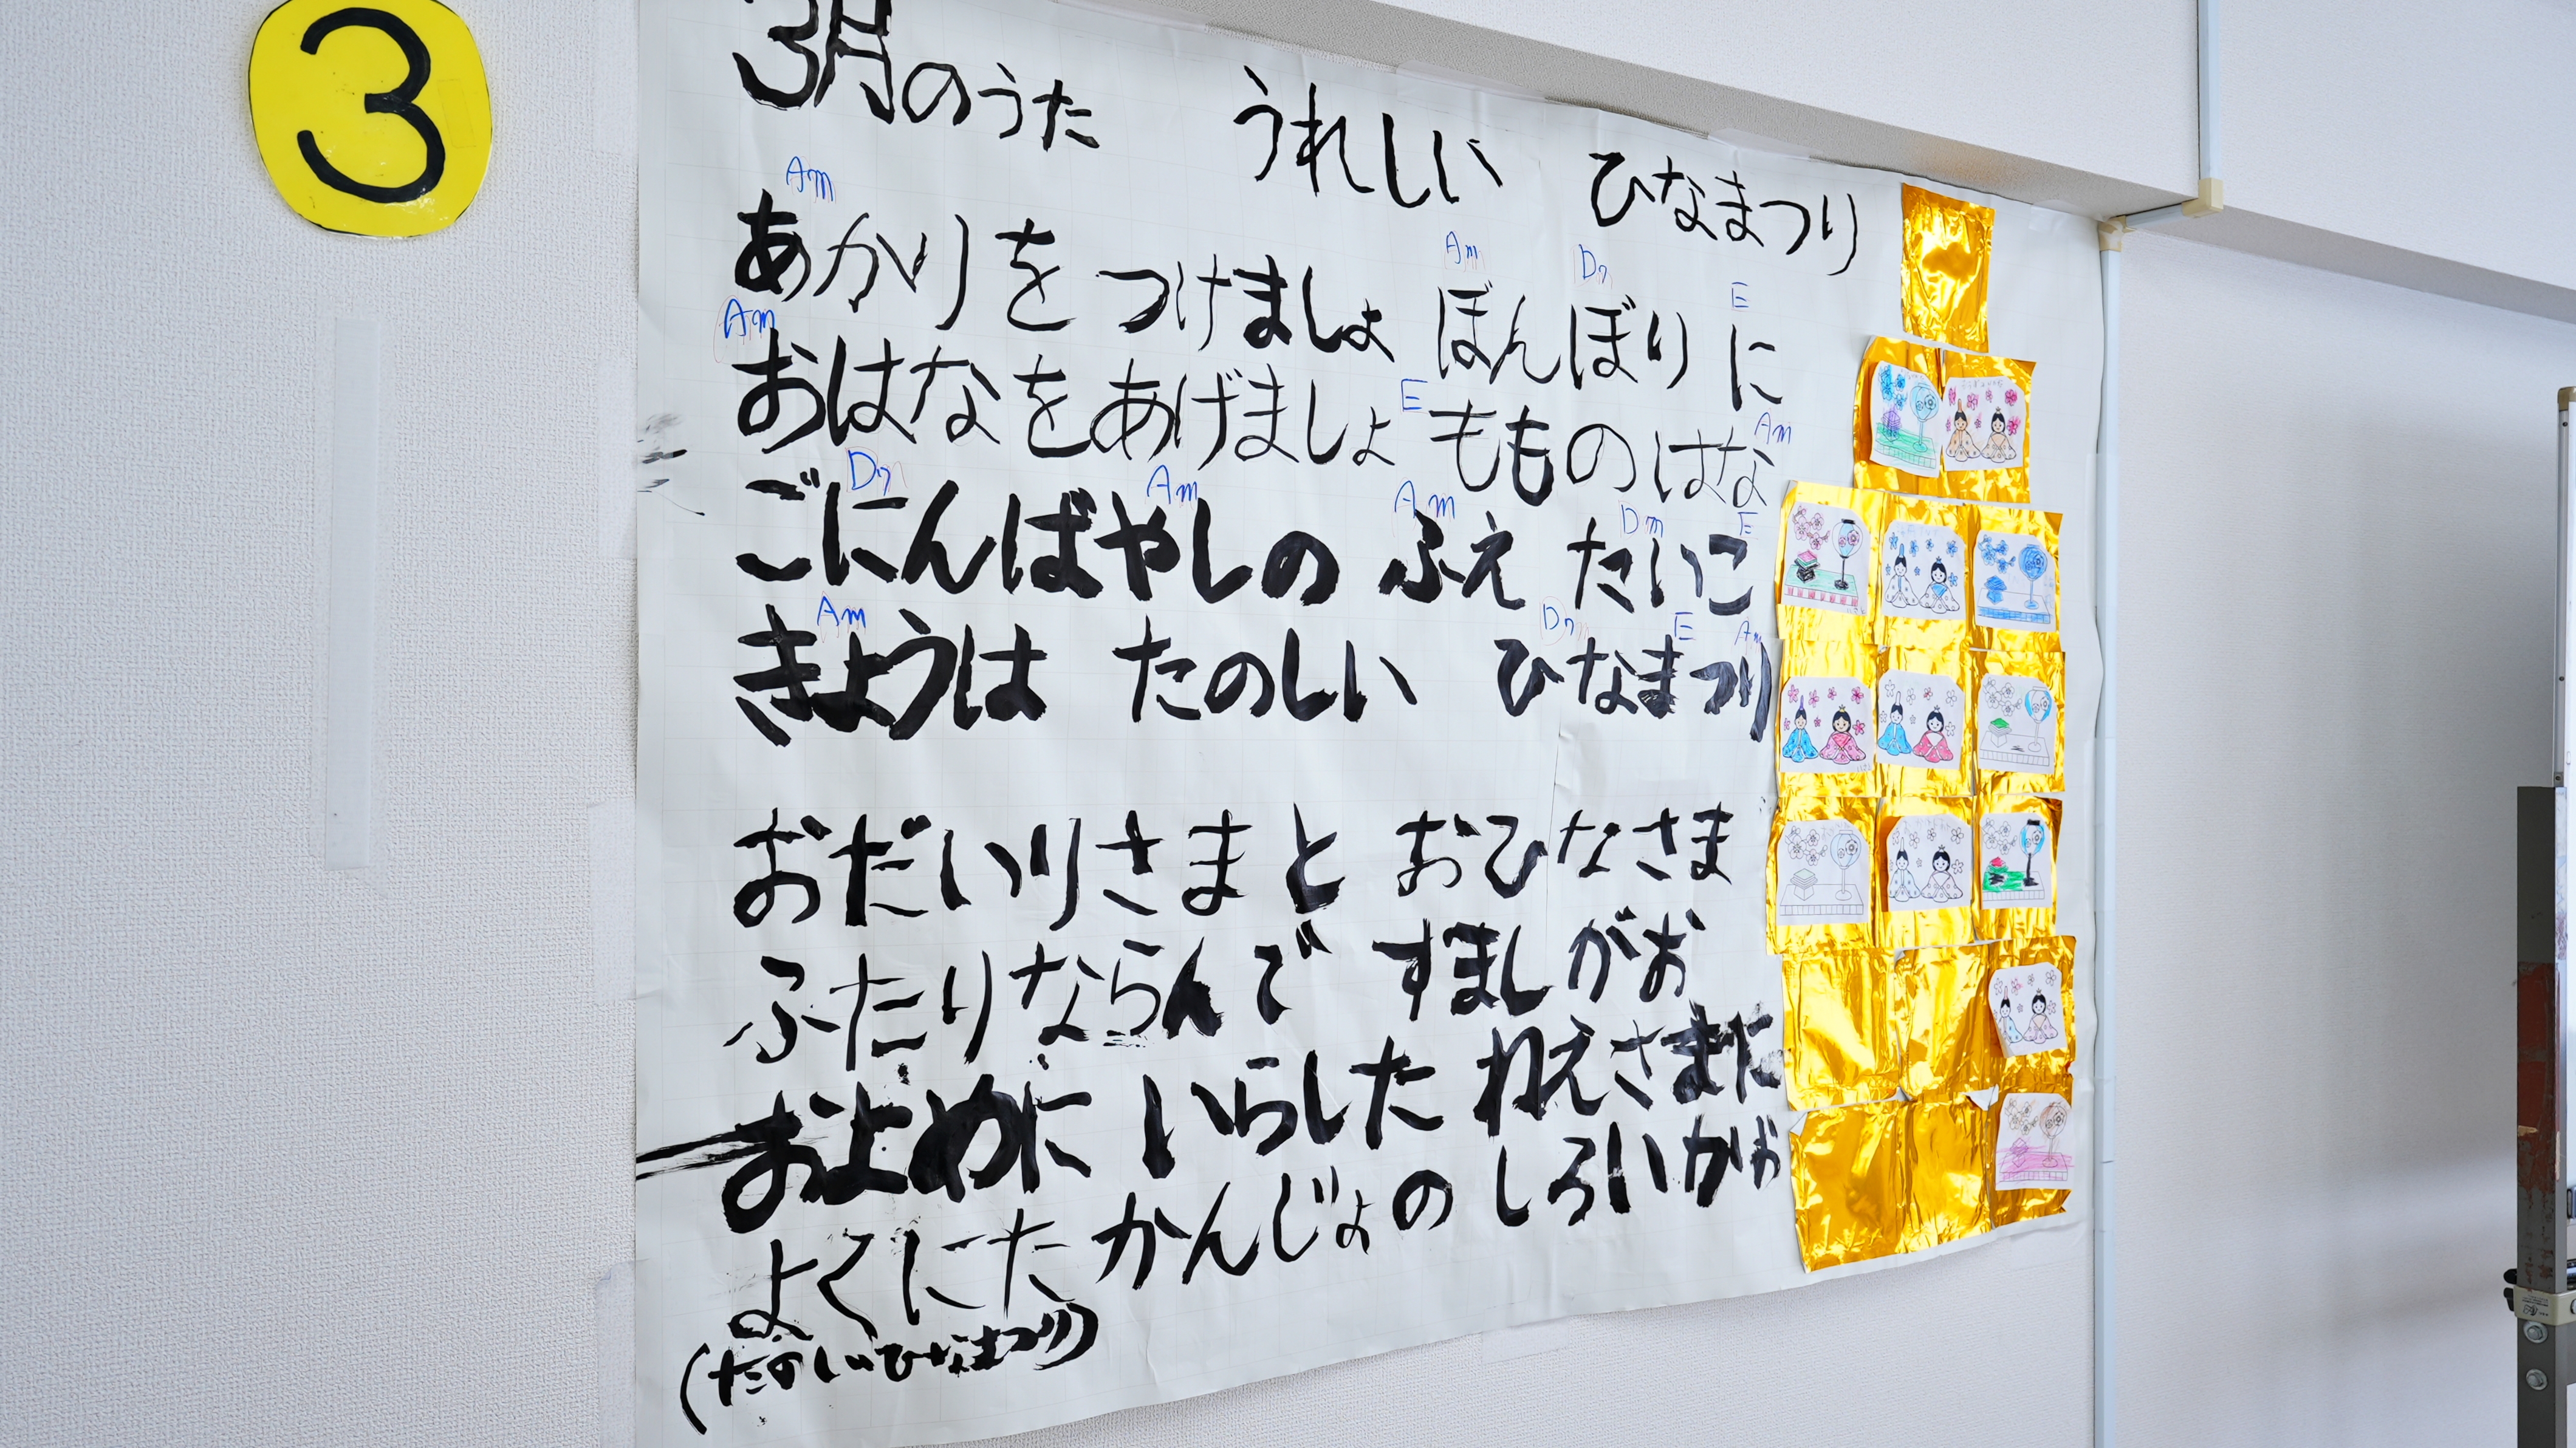 3
3月のうた うれしい ひなまつり
Am Am Dm E
あかりを つけましょ ぼんぼりに
Am E Am
おはなをあげましょ もものはな
Dm Am Am Dm E
ごにんばやしの ふえ たいこ
Am Dm E Am
きょうは たのしい ひなまつり
おだいりさまと おひなさま
ふたりならんで すましがお
およめに いらした ねえさまに
よくにた かんじょの しろいかお
(たのしいひなまつり)